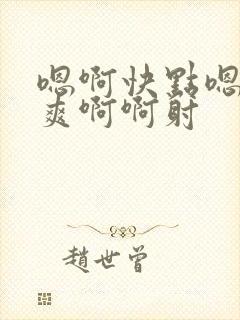 嗯啊快點嗯
爽啊啊射
趙世曾